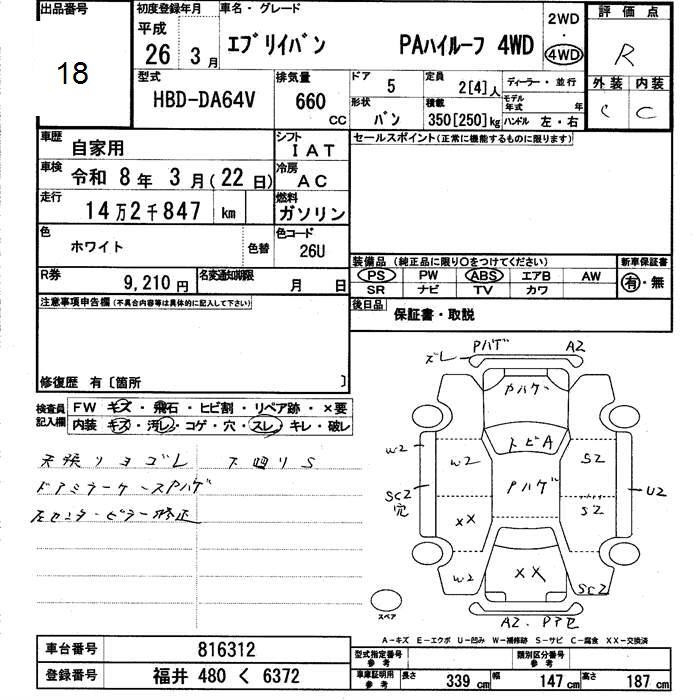 出品番号
18
初度登録年月
平成
26 3月
車名・グレード
エブリイバン PAハイルーフ 4WD
2WD
・
4WD
評価点
R
外装 内装
C C
型式
HBD-DA64V
排気量
660
CC
ドア
5
定員
2[4]人
ディーラー・並行
形状
バン
積載
350[250]kg
モデル年式 年
ハンドル 左・右
車歴
自家用
シフト
IAT
セールスポイント(正常に機能するものに限ります)
車検
令和 8年 3月(22日)
冷房
AC
走行
14万2千847 km
燃料
ガソリン
色
ホワイト
色替
色コード
26U
装備品(純正品に限り○をつけてください)
新車保証書
PS PW ABS エアB AW
SR ナビ TV カワ
有・無
R券
9,210円
名変通知期限
月 日
後日品
保証書・取説
注意事項申告欄(不具合内容等は具体的に記入して下さい)
修復歴 有〔箇所 〕
検査員記入欄
FW キズ・飛石・ヒビ割・リペア跡・×要
内装 キズ・汚レ・コゲ・穴・スレ・キレ・破レ
天張リヨゴレ 下廻りS
ドアミラーケースPハゲ
左センターピラー修正
ズレ Pハゲ A2
Pハゲ
トビA
W2 W2 S2
Pハゲ
SC2 穴 S2 U2
XX
W2 XX SC2
スペア
A2・Pアセ
A-キズ E-エクボ U-凹み W-補修跡 S-サビ C-腐食 XX-交換済
車台番号
816312
登録番号
福井 480 く 6372
型式指定番号
参考
類別区分番号
参考
車庫証明用
参考
長さ
339cm
幅
147cm
高さ
187cm